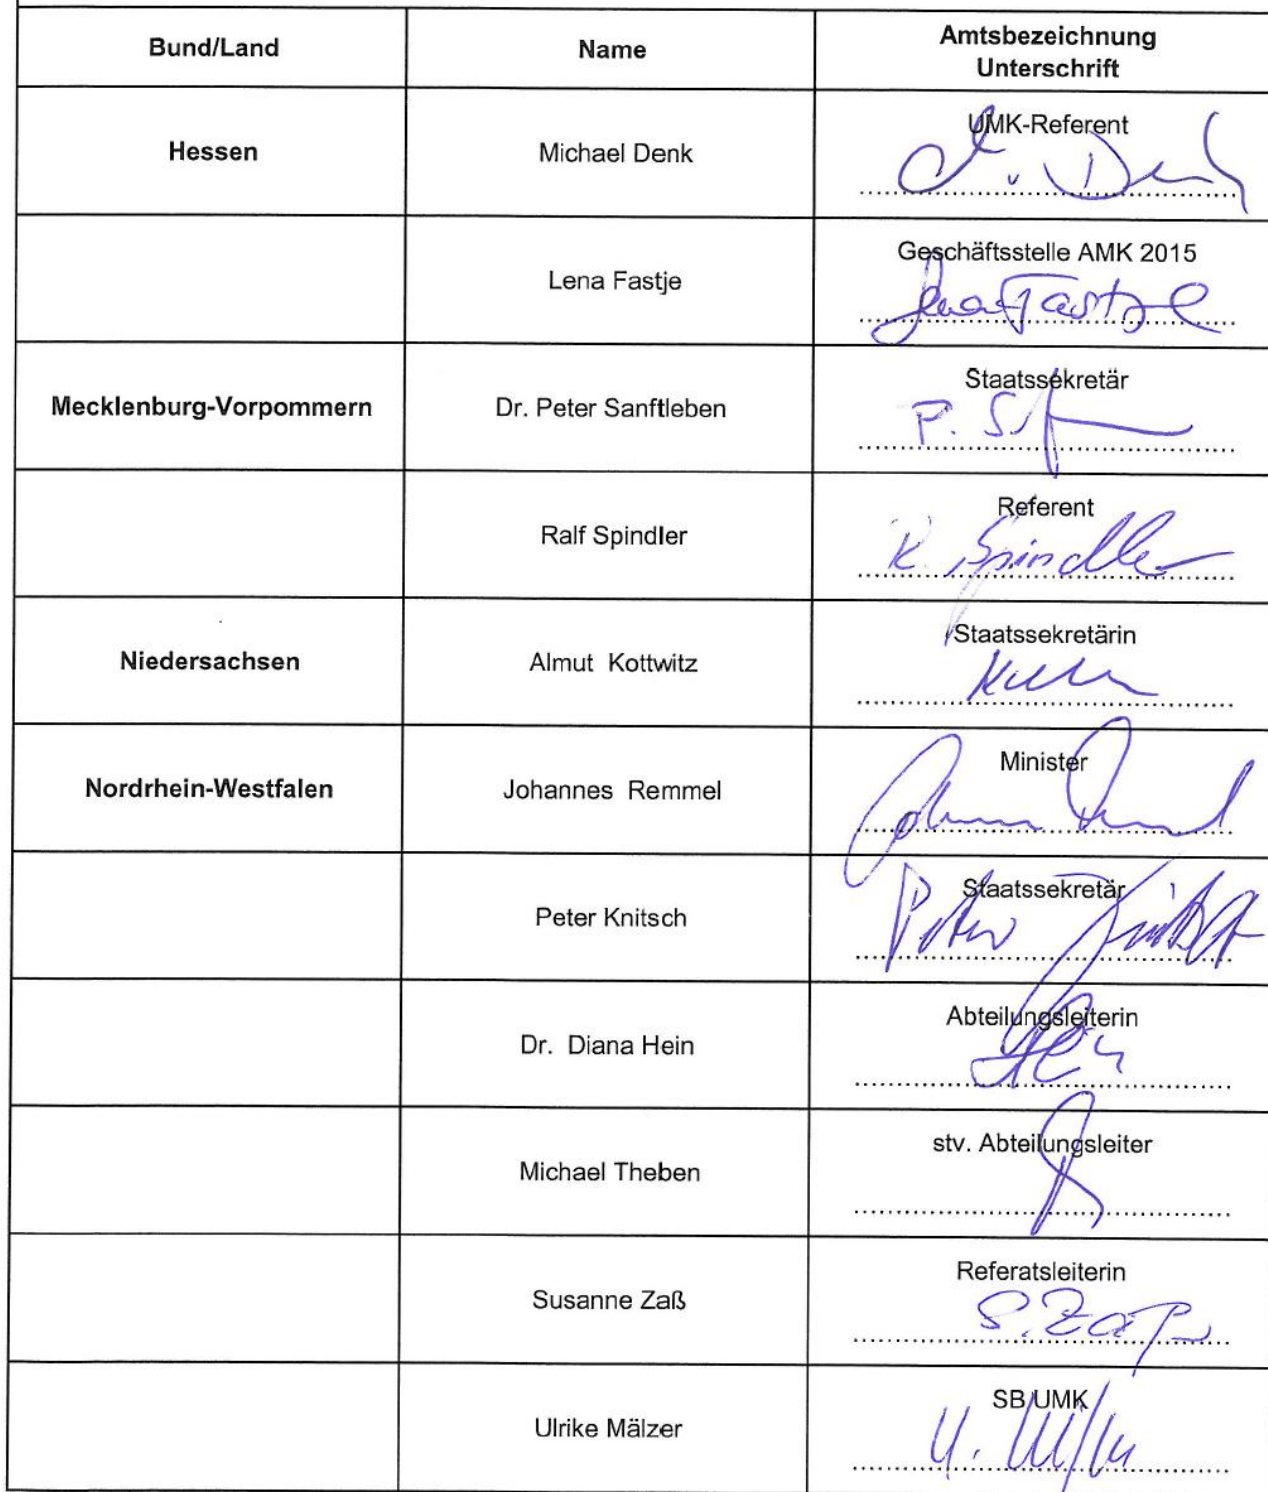 Bund/Land Name Amtsbezeichnung
Unterschrift
Hessen Michael Denk UMK-Referent
Lena Fastje Geschäftsstelle AMK 2015
Lena Fastje
Mecklenburg-Vorpommern Dr. Peter Sanftleben Staatssekretär
P. S
Ralf Spindler Referent
R. Spindler
Niedersachsen Almut Kottwitz Staatssekretärin
Nordrhein-Westfalen Johannes Remmel Minister
Peter Knitsch Staatssekretär
Peter Knitsch
Dr. Diana Hein Abteilungsleiterin
Hein
Michael Theben stv. Abteilungsleiter
Susanne Zaß Referatsleiterin
S. Zaß
Ulrike Mälzer SB UMK